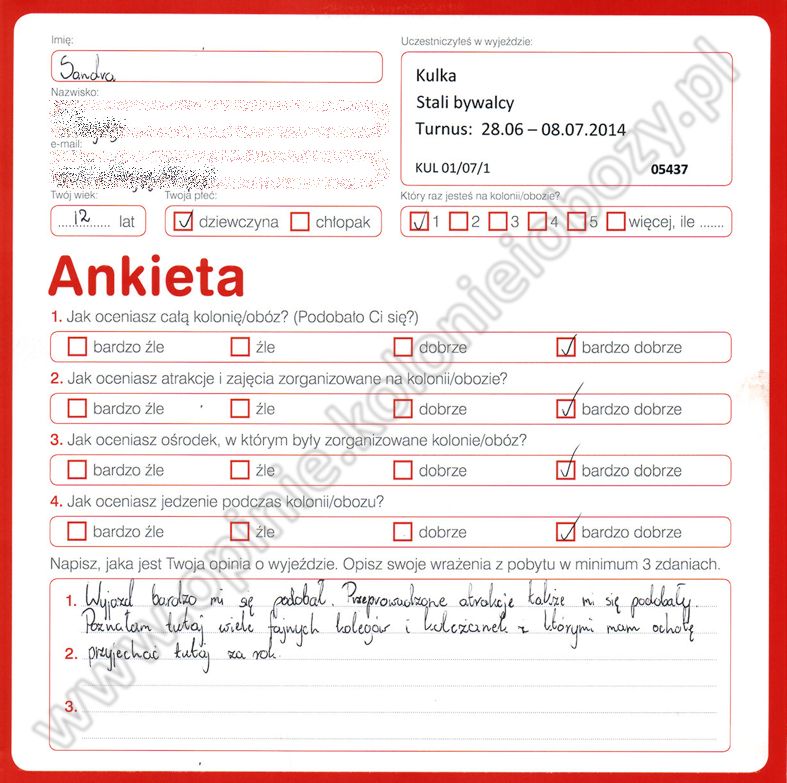 Imię:
Sandra
Uczestniczyłeś w wyjeździe:
Kulka
Stali bywalcy
Turnus: 28.06 – 08.07.2014
KUL 01/07/1 05437
Nazwisko:
e-mail:
Twój wiek:
12 lat
Twoja płeć:
dziewczyna chłopak
Który raz jesteś na kolonii/obozie?
1 2 3 4 5 więcej, ile .......
Ankieta
1. Jak oceniasz całą kolonię/obóz? (Podobało Ci się?)
bardzo źle źle dobrze bardzo dobrze
2. Jak oceniasz atrakcje i zajęcia zorganizowane na kolonii/obozie?
bardzo źle źle dobrze bardzo dobrze
3. Jak oceniasz ośrodek, w którym były zorganizowane kolonie/obóz?
bardzo źle źle dobrze bardzo dobrze
4. Jak oceniasz jedzenie podczas kolonii/obozu?
bardzo źle źle dobrze bardzo dobrze
Napisz, jaka jest Twoja opinia o wyjeździe. Opisz swoje wrażenia z pobytu w minimum 3 zdaniach.
1. Wyjazd bardzo mi się podobał. Przeprowadzone atrakcje także mi się podobały.
Poznałam tutaj wiele fajnych kolegów i koleżanek z którymi mam ochotę
2. przyjechać tutaj za rok.
3.
www.opinie.kolonieiobozy.pl